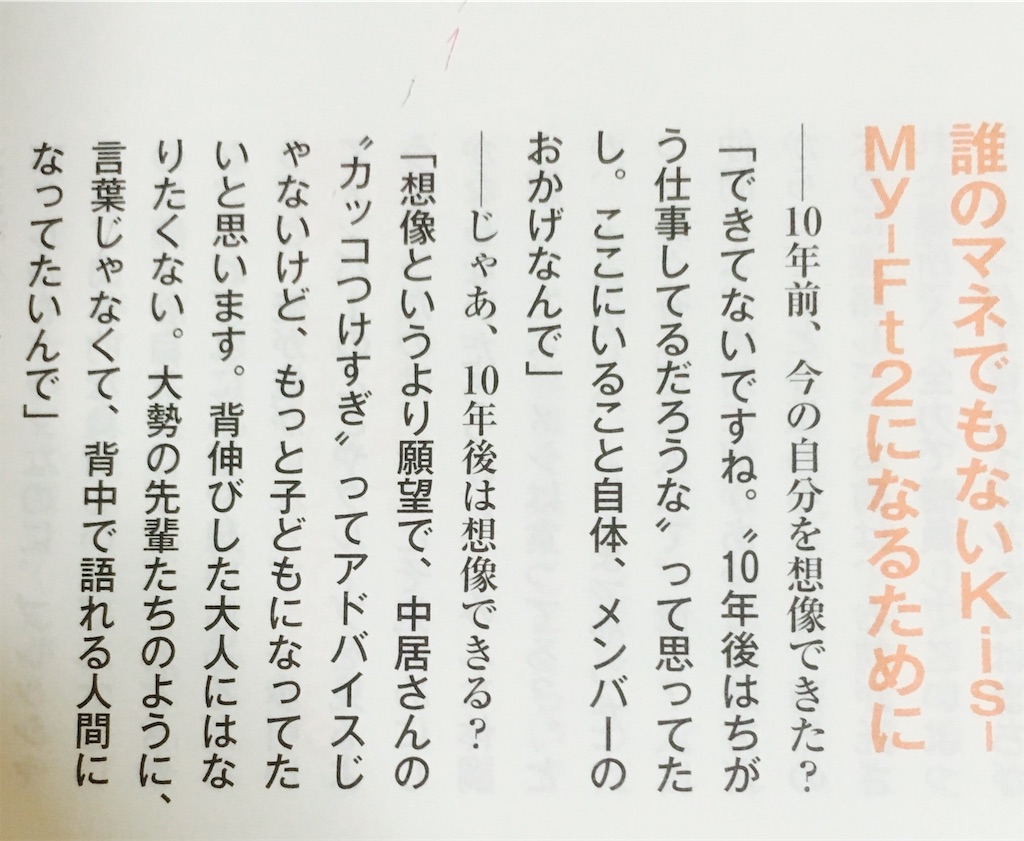 誰のマネでもないKis-
My-Ft2になるために
――10年前、今の自分を想像できた?
「できてないですね。〝10年後はちが
う仕事してるだろうな〟って思ってた
し。ここにいること自体、メンバーの
おかげなんで」
――じゃあ、10年後は想像できる?
「想像というより願望で、中居さんの
〝カッコつけすぎ〟ってアドバイスじ
ゃないけど、もっと子どもになってた
いと思います。背伸びした大人にはな
りたくない。大勢の先輩たちのように、
言葉じゃなくて、背中で語れる人間に
なってたいんで」